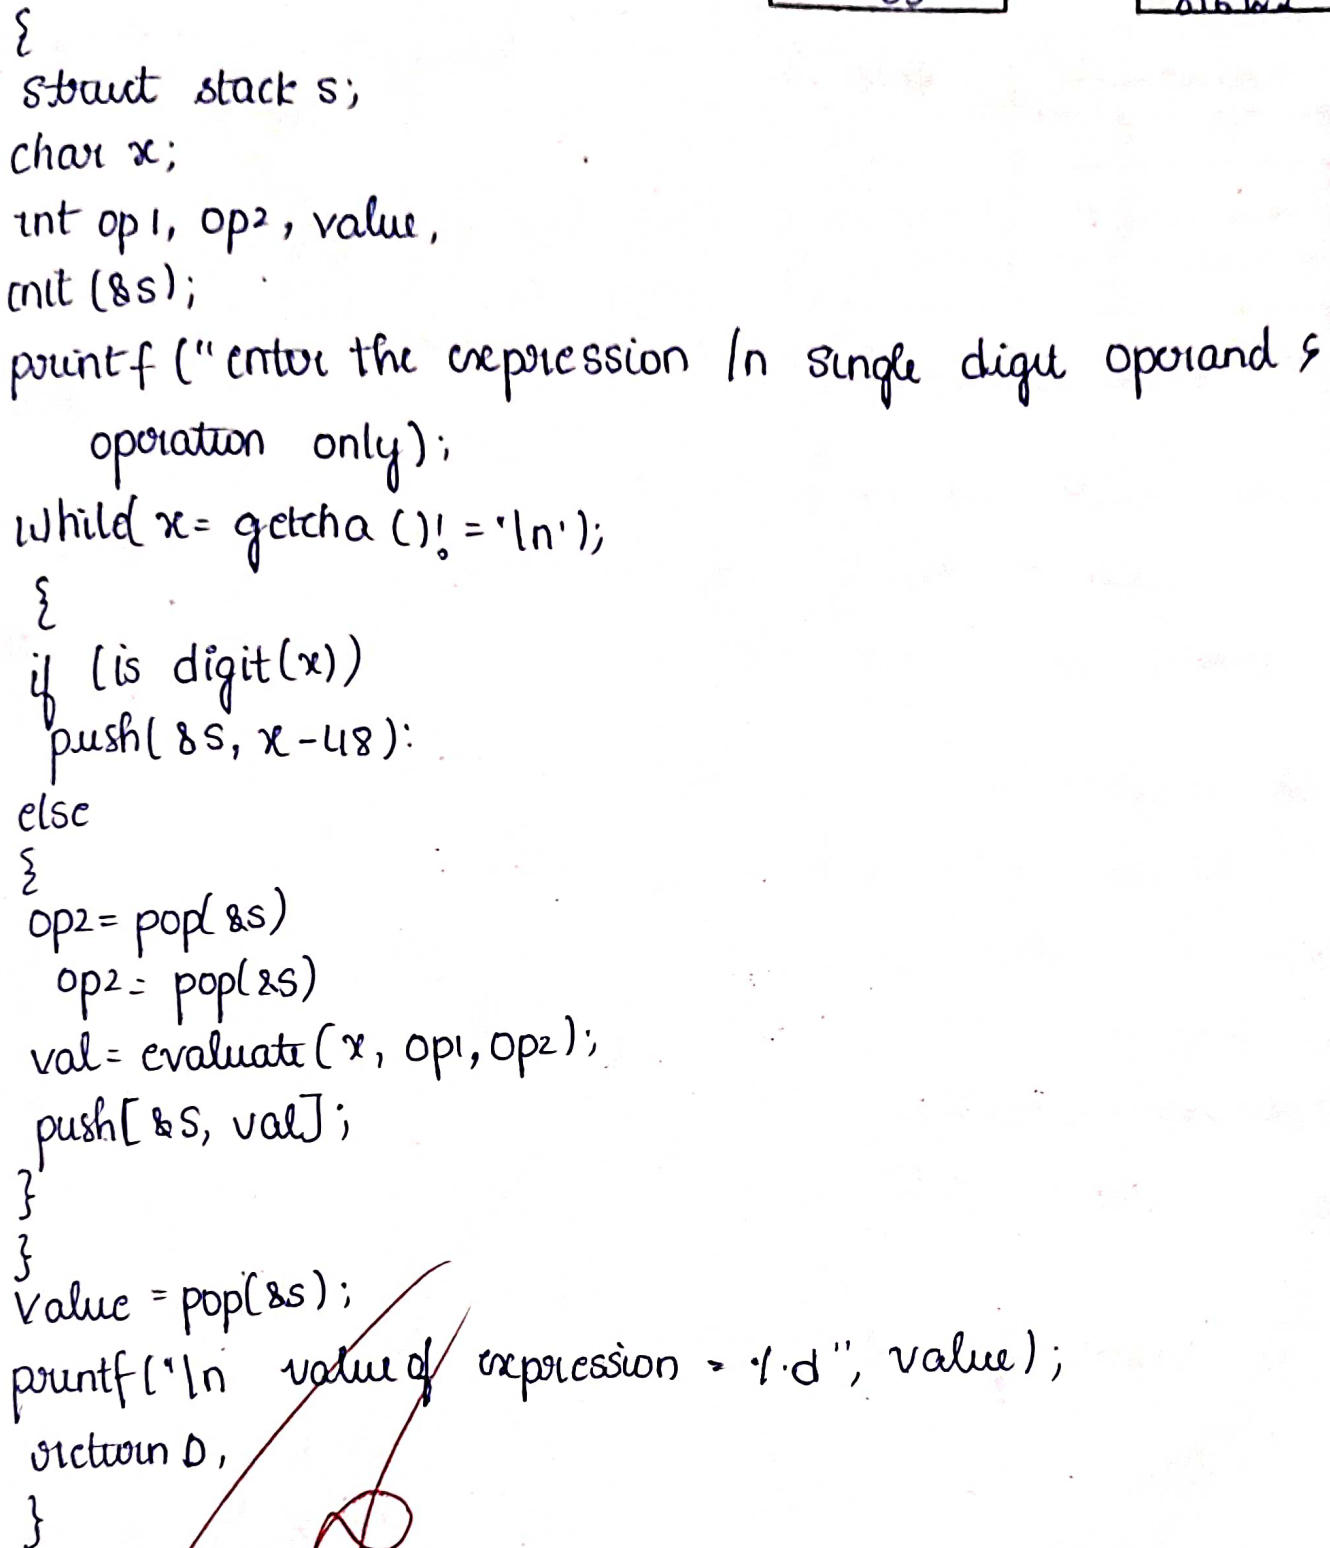 {
struct stack s;
char x;
int op1, op2, value,
init (&s);
printf ("enter the expression /n single digit operand &
operation only);
while( x= getcha ()! = '\n');
{
if (is digit(x))
push( &s, x-48):
else
{
op2= pop( &s)
op2= pop( &s)
val= evaluate (x, op1, op2);
push[ &s, val];
}
}
value = pop(&s);
printf("\n value of expression = %d", value);
return 0,
}